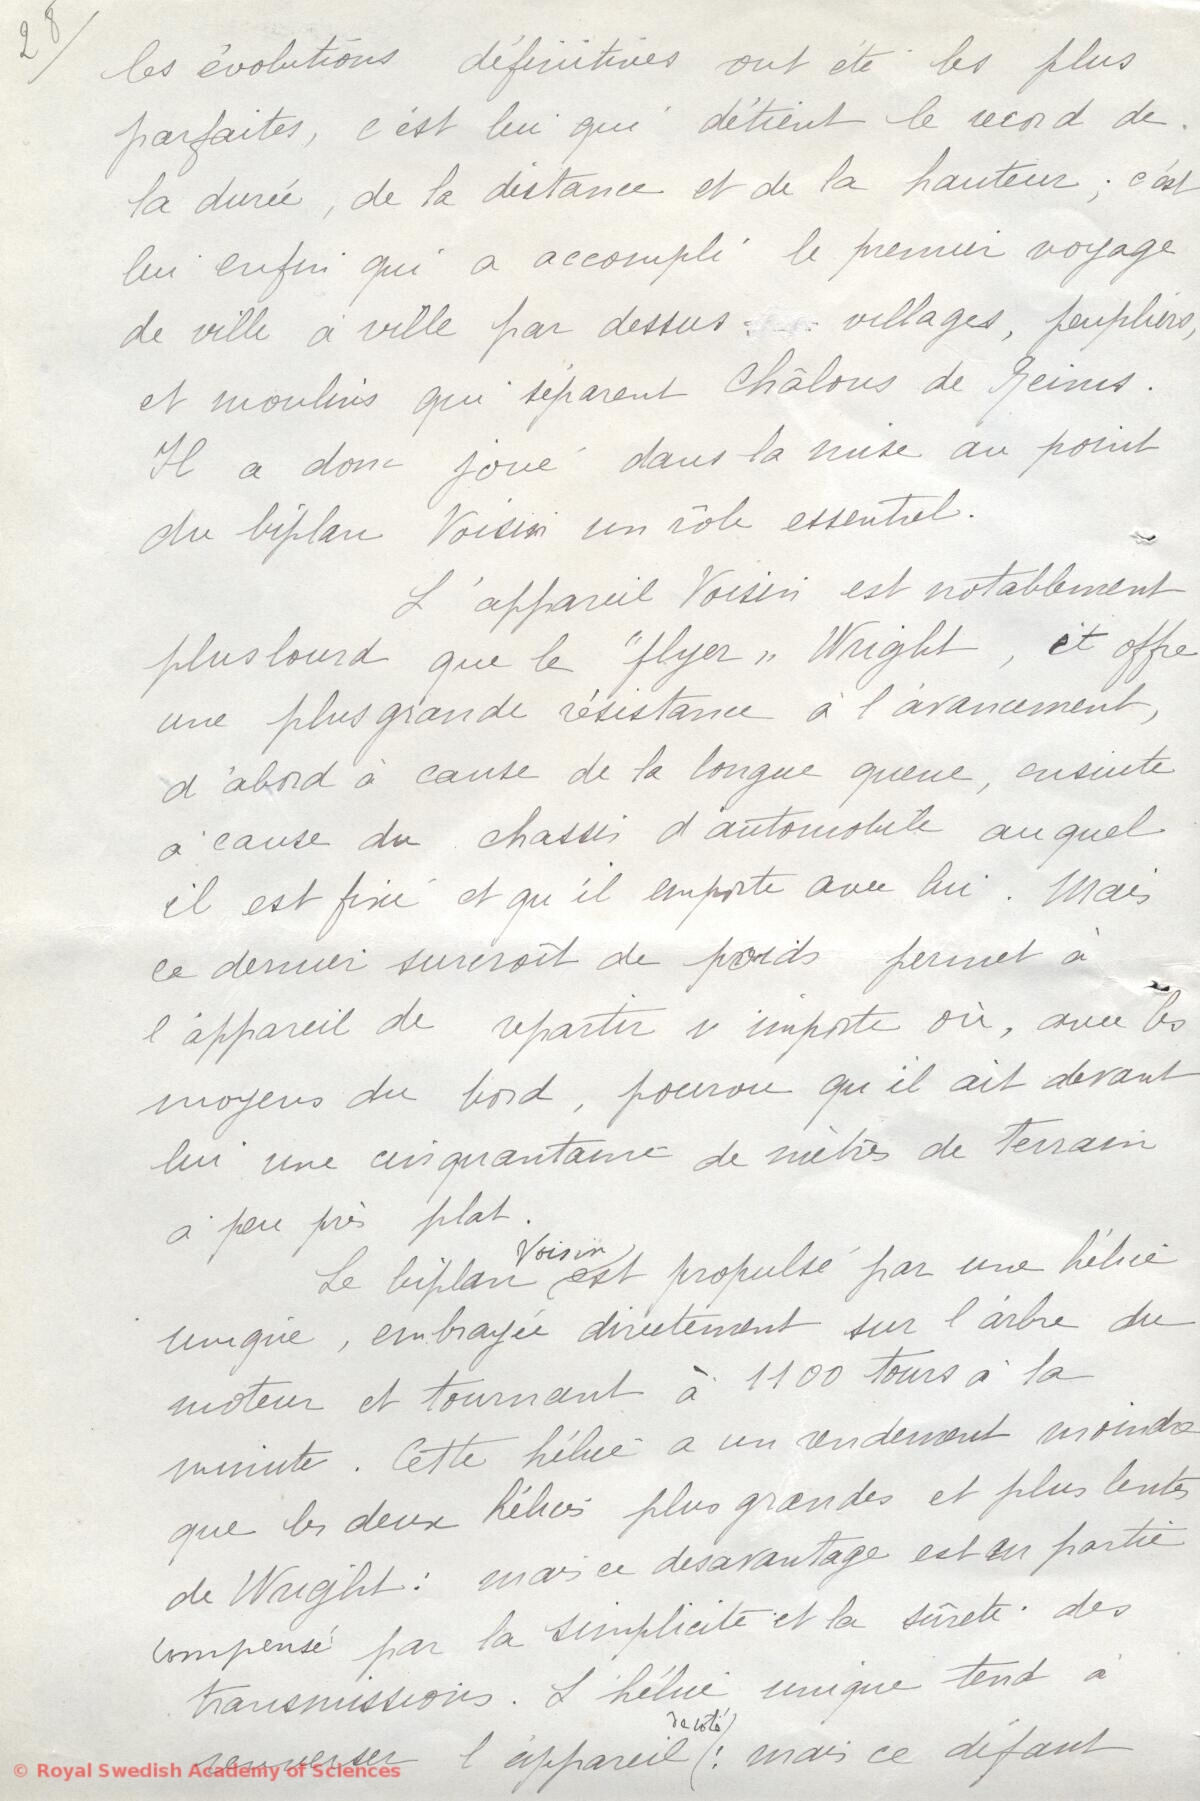 28/
les évolutions définitives ont été les plus
parfaites, c'est lui qui détient le record de
la durée, de la distance et de la hauteur ; c'est
lui enfin qui a accompli le premier voyage
de ville à ville par dessus villages, peupliers,
et moulins qui séparent Châlons de Reims.
Il a donc joué dans la mise au point
du biplan Voisin un rôle essentiel.
L'appareil Voisin est notablement
plus lourd que le "flyer" Wright, et offre
une plus grande résistance à l'avancement,
d'abord à cause de la longue queue, ensuite
à cause du chassis d'automobile auquel
il est fixé et qu'il emporte avec lui. Mais
ce dernier surcroît de poids permet à
l'appareil de repartir n'importe où, avec les
moyens du bord, pourvu qu'il ait devant
lui une cinquantaine de mètres de terrain
à peu près plat.
Le biplan Voisin est propulsé par une hélice
unique, embrayée directement sur l'arbre du
moteur et tournant à 1100 tours à la
minute. Cette hélice a un rendement moindre
que les deux hélices plus grandes et plus lentes
de Wright : mais ce desavantage est en partie
compensé par la simplicité et la sûreté des
transmissions. L'hélice unique tend à
renverser l'appareil de côté : mais ce défaut
© Royal Swedish Academy of Sciences